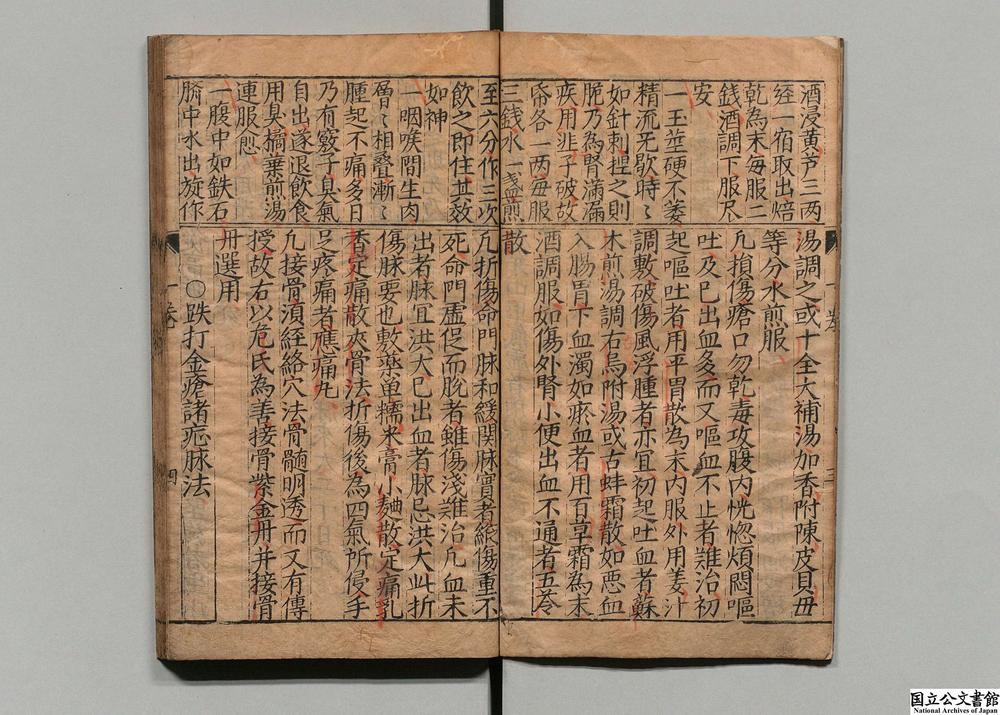 酒浸黄芦三两
経一宿取出焙
乾為末毎服二
錢酒調下服尽
安
一玉莖硬不萎
精流无歇時〻
如針刺揑之則
脆乃為腎滿漏
疾用韭子破故
帋各一两毎服
三錢水一盞煎
湯調之或十全大補湯加香附陳皮貝母
等分水煎服
凢損傷瘡口勿乾毒攻腹内恍惚煩悶嘔
吐及已出血多而又嘔血不止者難治初
起嘔吐者用平胃散為末内服外用姜汁
調敷破傷風浮腫者亦宜初起吐血者蘇
木煎湯調右烏附湯或古蚌霜散如悪血
入腸胃下血濁如瘀血者用百草霜為末
酒調服如傷外腎小便出血不通者五苓
散
至六分作三次
飲之即住其效
如神
一咽喉間生肉
層〻相疊漸〻
腫起不痛多日
乃有竅子臭氣
自出遂退飲食
用臭橘葉煎湯
連服愈
一腹中如鉄石
臍中水出旋作
凢折傷命門脉和緩関脉實者縱傷重不
死命門虚促而脫者雖傷淺難治凢血未
出者脉宜洪大已出血者脉忌洪大此折
傷脉要也敷藥单糯米膏小麯散定痛乳
香定痛散夾骨法折傷後為四氣所侵手
足疼痛者應痛丸
凢接骨須経絡穴法骨髓明透而又有傳
授故右以危氏為善接骨紫金丹并接骨
丹選用
○跌打金瘡諸疕脉法
一卷
四
国立公文書館
National Archives of Japan